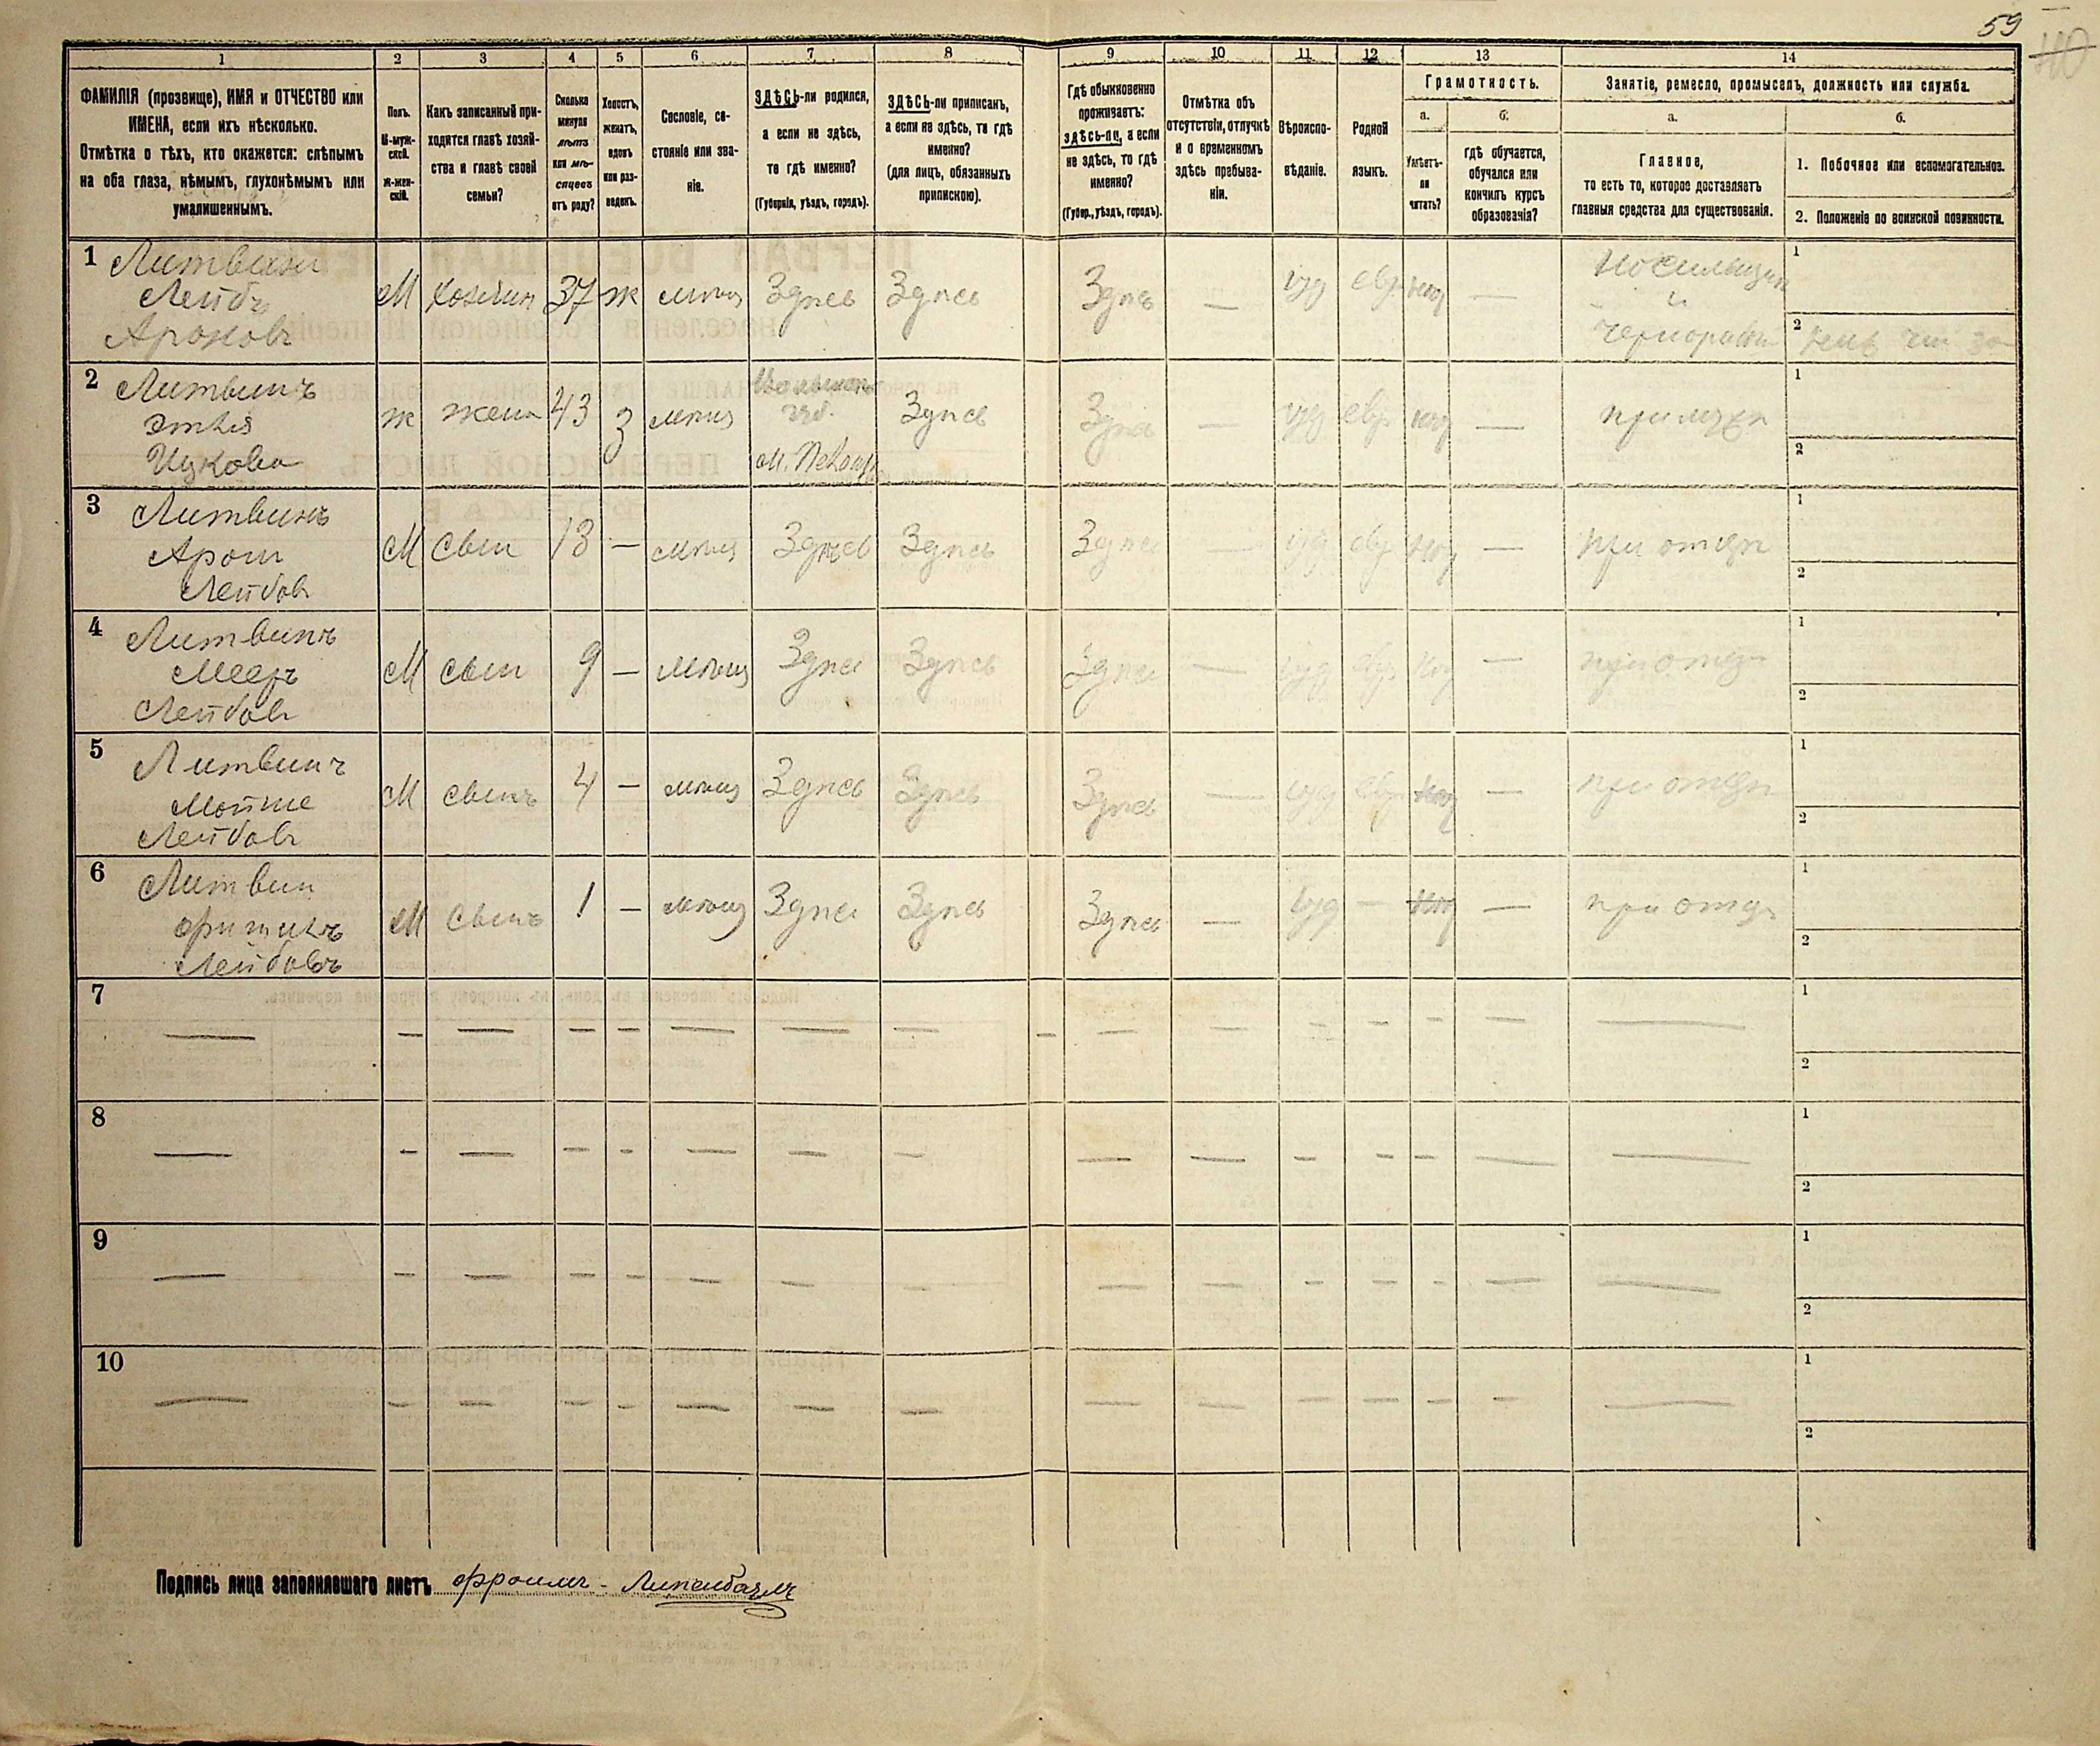 59
40
1
2
3
4
5
6
7
8
9
10
11
12
13
14
ФАМИЛІЯ (прозвище), ИМЯ и ОТЧЕСТВО или
ИМЕНА, если ихъ нѣсколько.
Отмѣтка о тѣхъ, кто окажется: слѣпымъ
на оба глаза, нѣмымъ, глухонѣмымъ или
умалишеннымъ.
Полъ.
М-муж-
ской.
Ж-жен-
скій.
Какъ записанный при-
ходится главѣ хозяй-
ства и главѣ своей
семьи?
Сколько
минуло
лѣтъ
или мѣ-
сяцевъ
отъ роду?
Холостъ,
женатъ,
вдовъ
или раз-
веденъ.
Сословіе, со-
стояніе или зва-
ніе.
ЗДѢСЬ-ли родился,
а если не здѣсь,
то гдѣ именно?
(Губернія, уѣздъ, городъ).
ЗДѢСЬ-ли приписанъ,
а если не здѣсь, то гдѣ
именно?
(для лицъ, обязанныхъ
припискою).
Гдѣ обыкновенно
проживаетъ:
здѣсь-ли, а если
не здѣсь, то гдѣ
именно?
(Губер., уѣздъ, городъ).
Отмѣтка объ
отсутствіи, отлучкѣ
и о временномъ
здѣсь пребыва-
ніи.
Вѣроиспо-
вѣданіе.
Родной
языкъ.
Грамотность.
а.
Умѣетъ-
ли
читать?
б.
гдѣ обучается,
обучался или
кончилъ курсъ
образованія?
Занятіе, ремесло, промыселъ, должность или служба.
а.
Главное,
то есть то, которое доставляетъ
главныя средства для существованія.
б.
1. Побочное или вспомогательное.
2. Положеніе по воинской повинности.
1 Литвинъ
Лейбъ
Ароновъ
М Хозяинъ 37 ж мѣщ Здѣсь Здѣсь Здѣсь — іуд евр —
Носильщик
и
чернораб
1
2
2 Литвинъ
Этля
Ицкова
ж жена 43 З мѣщ
губ.
Здѣсь Здѣсь — іуд евр — при мужѣ
1
2
3 Литвинъ
Арон
Лейбов
М Сын 13 — мѣщ Здѣсь Здѣсь Здѣсь — іуд евр — при отцѣ
1
2
4 Литвинъ
Мееръ
Лейбовъ
М сын 9 — мѣщ Здѣсь Здѣсь Здѣсь — іуд евр — при отцѣ
1
2
5 Литвинъ
Мойше
Лейбовъ
М сынъ 4 — мѣщ Здѣсь Здѣсь Здѣсь — іуд евр — при отцѣ
1
2
6 Литвин
Лейбовъ
М Сынъ 1 — мѣщ Здѣсь Здѣсь Здѣсь — іуд — — при отцѣ
1
2
7 — — — — — — — — — — — — — — —
1
2
8 — — — — — — — — — — — — — — —
1
2
9 — — — — — — — — — — — — — — —
1
2
10 — — — — — — — — — — — — — — —
1
2
Подпись лица заполнявшаго листъ Фроимъ -